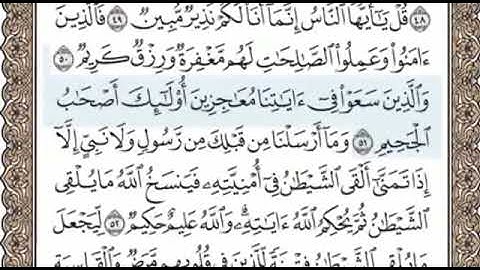 ٤٨ قُلْ يَٰٓأَيُّهَا ٱلنَّاسُ إِنَّمَآ أَنَا۠ لَكُمْ نَذِيرٌ مُّبِينٌ ٤٩ فَٱلَّذِينَ
ءَامَنُوا۟ وَعَمِلُوا۟ ٱلصَّٰلِحَٰتِ لَهُم مَّغْفِرَةٌ وَرِزْقٌ كَرِيمٌ ٥٠
وَٱلَّذِينَ سَعَوْا۟ فِىٓ ءَايَٰتِنَا مُعَٰجِزِينَ أُو۟لَٰٓئِكَ أَصْحَٰبُ
ٱلْجَحِيمِ ٥١ وَمَآ أَرْسَلْنَا مِن قَبْلِكَ مِن رَّسُولٍ وَلَا نَبِىٍّ إِلَّآ
إِذَا تَمَنَّىٰٓ أَلْقَى ٱلشَّيْطَٰنُ فِىٓ أُمْنِيَّتِهِۦ فَيَنسَخُ ٱللَّهُ مَا يُلْقِى
ٱلشَّيْطَٰنُ ثُمَّ يُحْكِمُ ٱللَّهُ ءَايَٰتِهِۦ ۗ وَٱللَّهُ عَلِيمٌ حَكِيمٌ ٥٢ لِّيَجْعَلَ
مَا يُلْقِى ٱلشَّيْطَٰنُ فِتْنَةً لِّلَّذِينَ فِى قُلُوبِهِم مَّرَضٌ وَٱلْقَاسِيَةِ